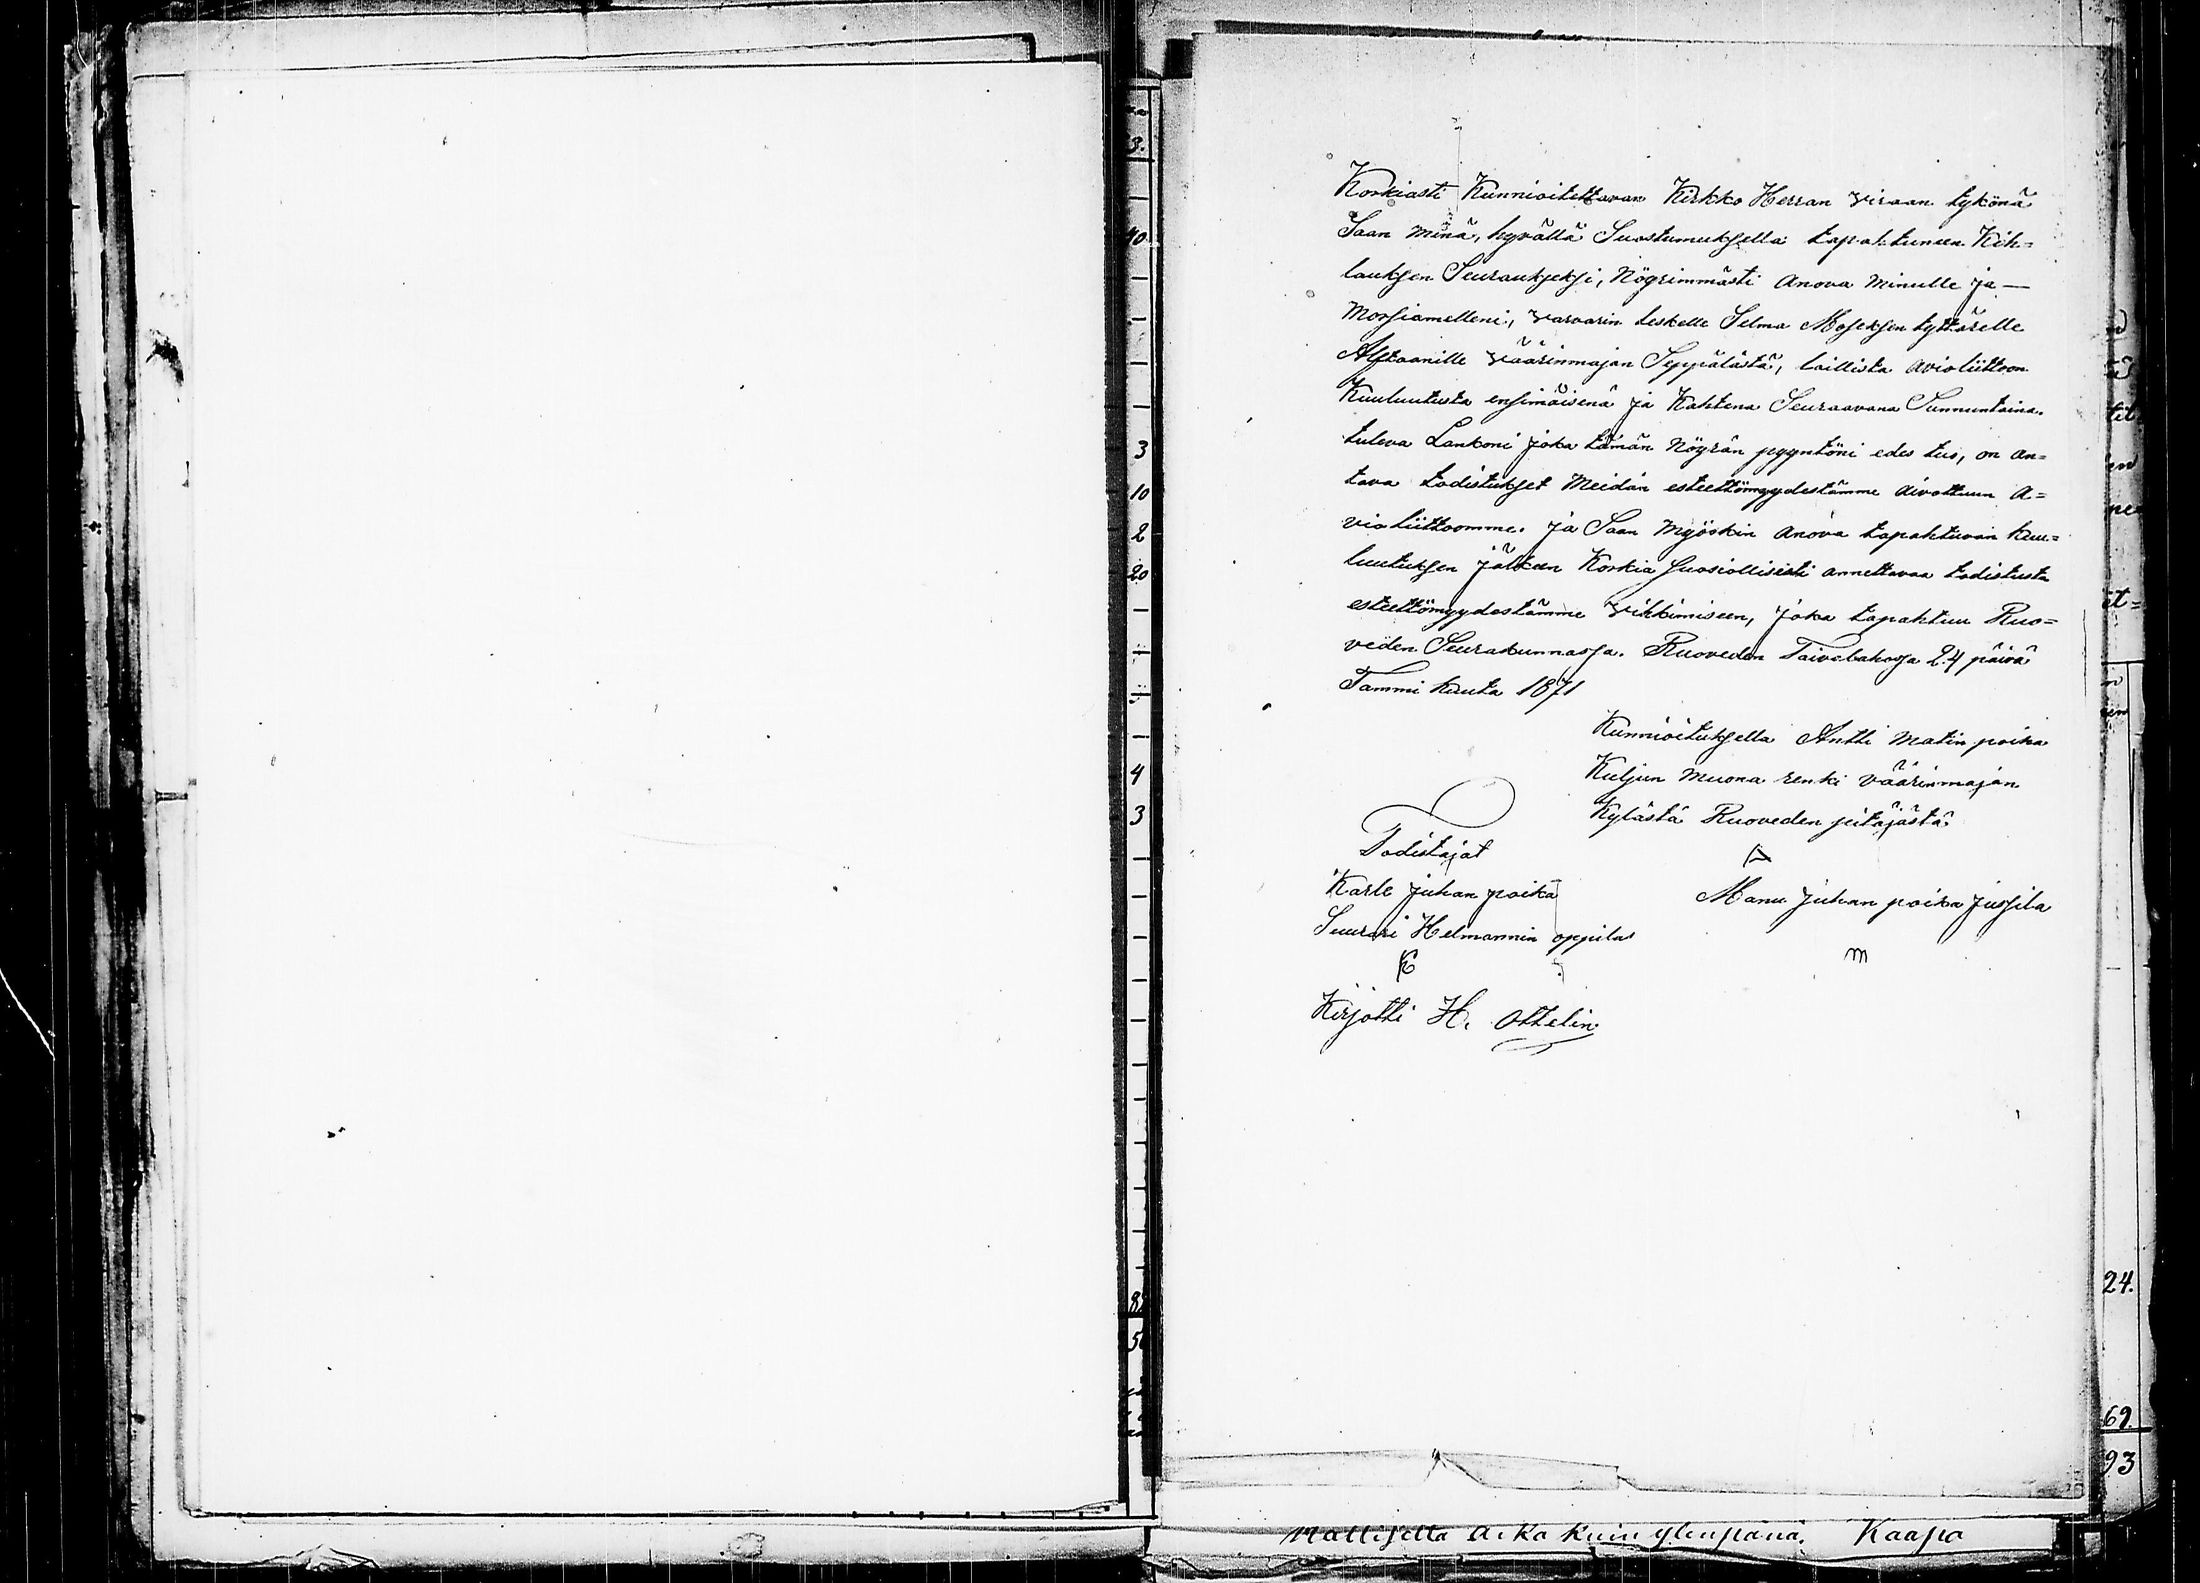 Korkiasti Kunnioitettavan Kirkko Herran Viraan tykönä
Saan minä, hyvällä Suostumuksella tapahtuneen Kih=
lauksen Seuraukseksi, Nögrimmästi anova minulle ja —
Morsiamelleni, Varvarin leskelle Selma Moseksen tyttärelle
Alftaanille Väärinmajan Seppälästä, laillista avioliittoon
Kuuluutusta ensimäisenä ja Kahtena Seuraavana Sunnuntaina.
tuleva Lankoni joka tämän Nögrän pyyntöni edes tuo, on an=
tava todistukset Meidän esteettömyydestämme aivottuun a=
violiittoomme. ja Saan Myöskin anova tapahtuvan kuu=
luutuksen jälkeen Korkia Suosiollisesti annettavaa todistusta
esteettömyydestämme Vihkimiseen, joka tapahtuu Ruo=
veden Seurakunnassa. Ruoveden 24 päivä
Tammi kuuta 1871
Kunnioituksella Antti Matin poika
Kuljun Muona renki Väärinmajan
Kylästä Ruoveden pitäjästä
Todistajat
Karle Juhan poika
Manu Juhan poika Jussila
Helmannin oppilas
K
m
Kirjotti H. Ottelin
3.
40
3
10
2
20
4
3
8
5
24.
69.
93
aika kuin ylempänä. Kaapo